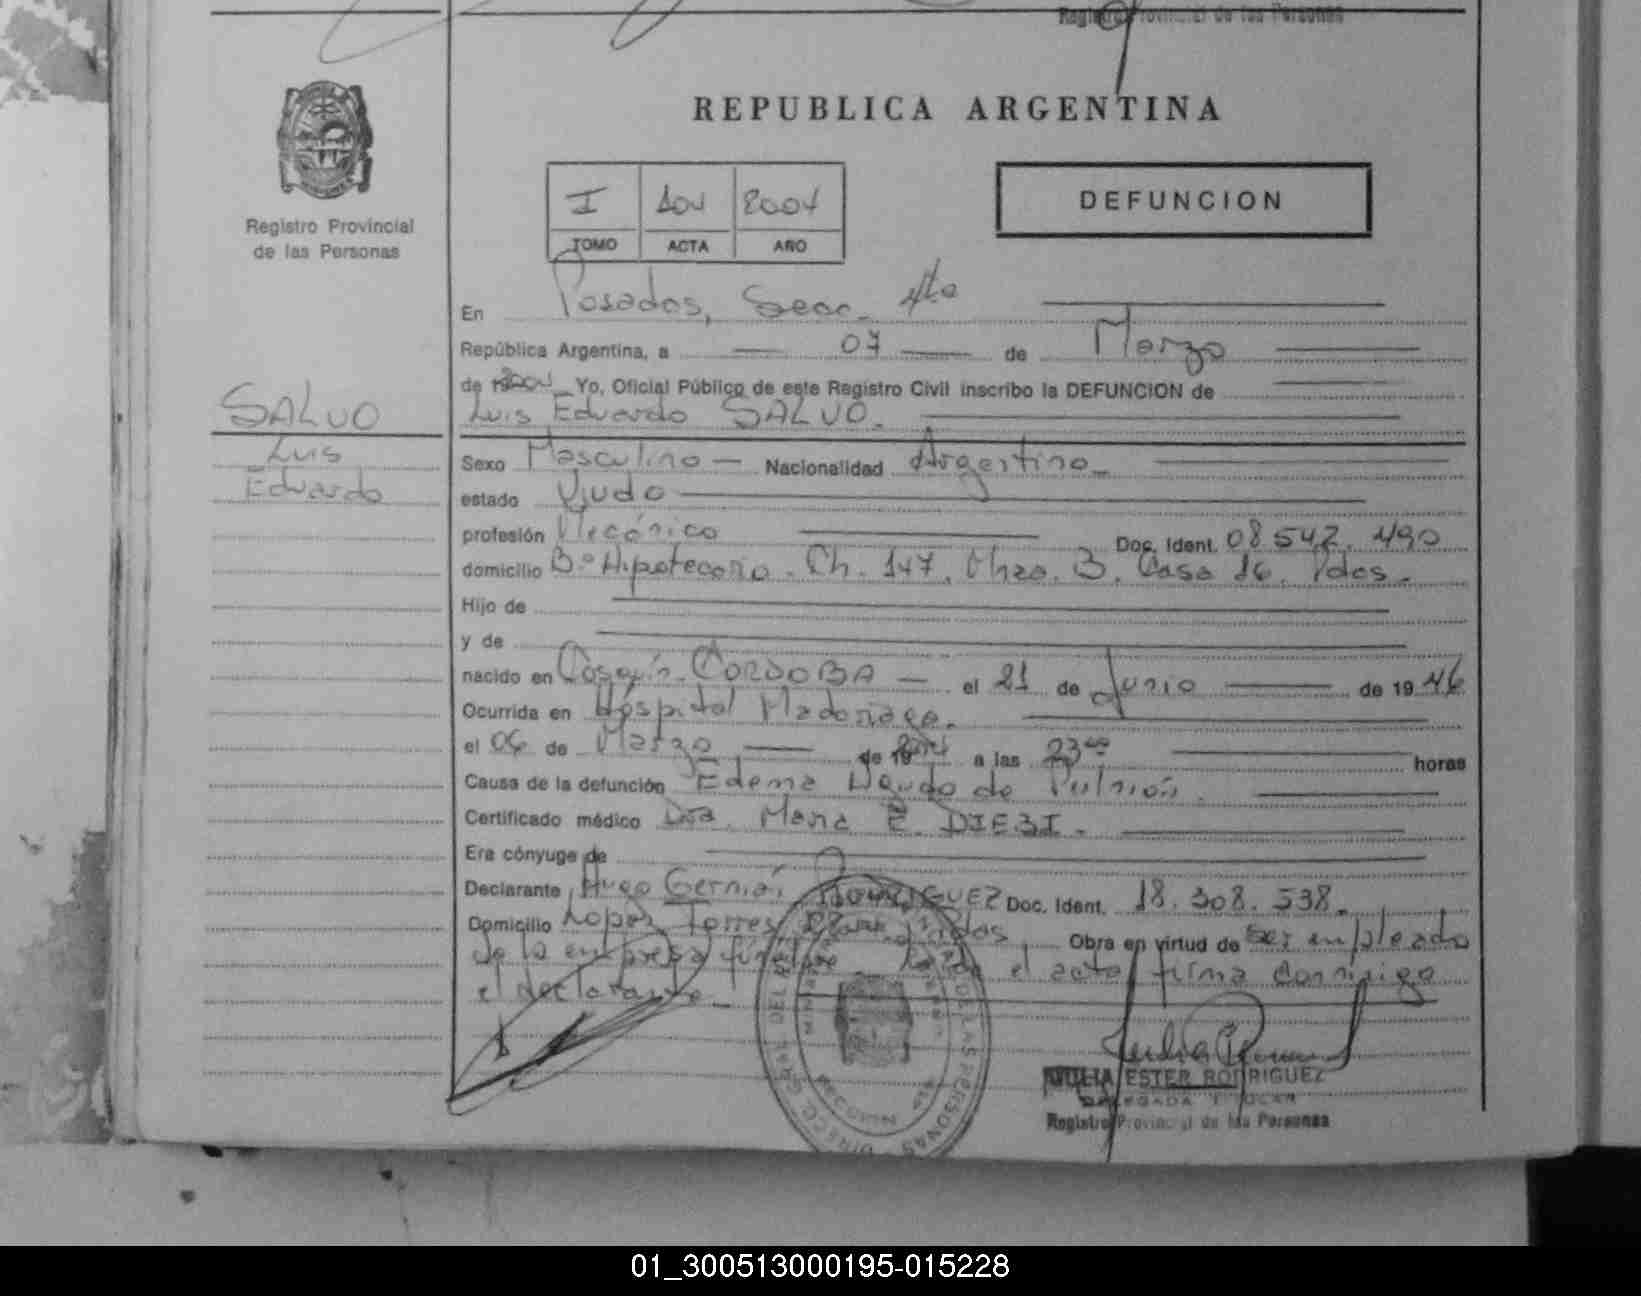 Registro Provincial de las Personas
REPUBLICA ARGENTINA
I 104 2004
TOMO ACTA AÑO
DEFUNCION
Registro Provincial
de las Personas
En Posadas, Secc. 4ta
República Argentina, a 07 de Marzo
de 2004 Yo, Oficial Público de este Registro Civil inscribo la DEFUNCION de
Luis Eduardo SALVO.
SALVO
Luis
Eduardo
Sexo Masculino Nacionalidad Argentino
estado Viudo
profesión Mecánico Doc. Ident. 08.542.490
domicilio B° Hipotecario. Ch. 147. Mza. 3. Casa 16. Pdas.
Hijo de
y de
nacido en Cosquín. CORDOBA el 21 de Junio de 1946
Ocurrida en Hospital Madariaga.
el 06 de Marzo de 2004 a las 23 horas
Causa de la defunción Edema Agudo de Pulmón.
Certificado médico Dra. Maria E. DIE3I.
Era cónyuge de
Declarante Hugo Germán RODRIGUEZ Doc. Ident. 18.308.538.
Domicilio Lopez Torres Pdas Obra en virtud de ser empleado
de la empresa fúnebre el acta firma conmigo
el declarante
JULIA ESTER RODRIGUEZ
DELEGADA TITULAR
Registro Provincial de las Personas
01_300513000195-015228